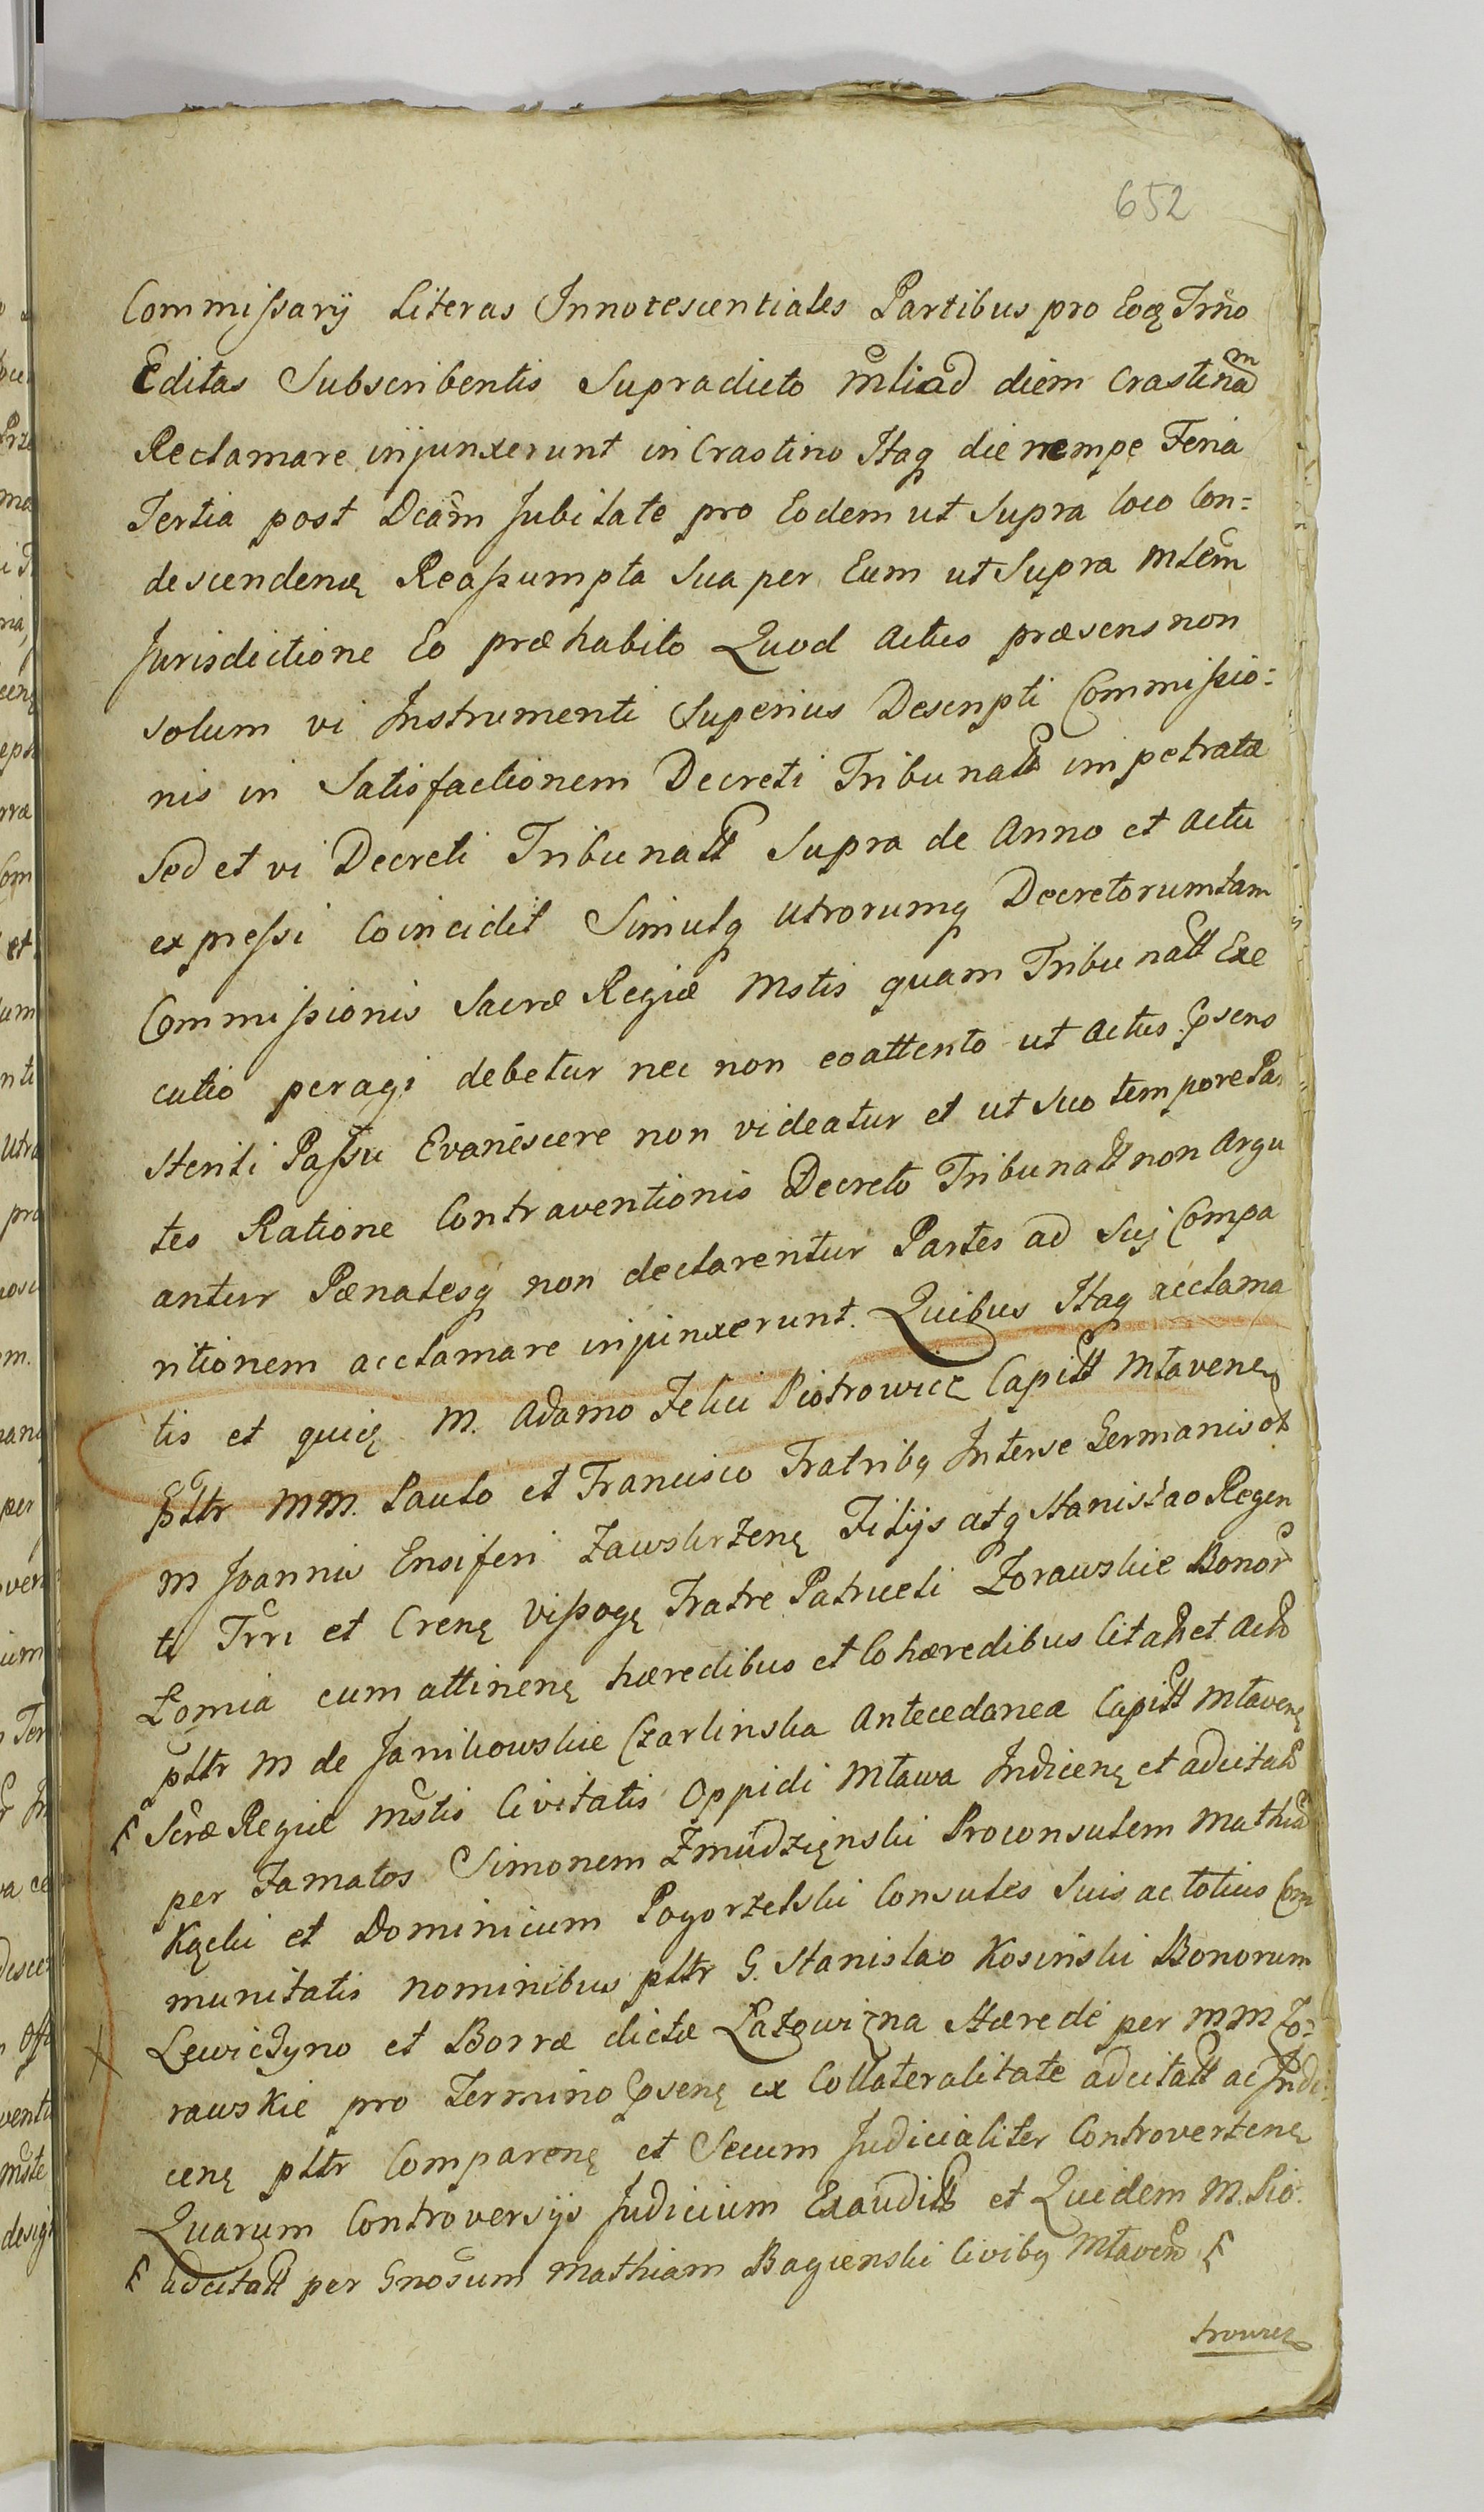 652
Commissarÿ Literas Innotescentiales Partibus pro Eoq Trno
Editas Subscribentis Supradicto mliad diem Crastinam
Reclamare injunxerunt in Crastino Itaq die nempe Feria
Tertia post Dcam Jubilate pro Eodem ut Supra loco Con=
descendenę Reassumpta Sua per Eum ut Supra Mtem
Jurisdictione Eo præhabito Quod Actus præsens non
solum vi Instrumenti Superius Descripti Commissio=
nis in Satisfactionem Decreti Tribunatt impetratæ
Sed et vi Decreti Tribunatt Supra de Anno et Actu
expressi Coincidit Simulq utrorumq Decretorum tam
Commissionis Sacræ Regiæ Mstis quam Tribunatt Exe
cutio peragi debetur nec non eo attento ut Actus psens
Sterili Passu Evanescere non videatur et ut Suo tempore Par
tes Ratione Contraventionis Decreto Tribunatt non Argu
antur Pœnalesq non declarentur Partes ad Suj Compa
ritionem acclamare injunxerunt. Quibus Itaq acclama
tis et quidę M. Adamo Felici Piotrowicz Capitt Mlavenę
pttr MM. Paulo et Francisco Fratribq Inter se Germanis ot
M Joannis Ensiferi Zawskrzenę Filijs atq Stanislao Regen
ti Trri et Crenę Vissogę Fratre Patrueli Zorawskie Bonor
Łomia cum attinenę hæredibus et Cohæredibus Citatt et Act
pttr M de Janikowskie Czarlinska Antecedanea Capitt Mlavenę
Scræ Regiæ Mstis Civitatis Oppidi Mława Indicenę et adcitatt
per Famatos Simonem Zmudzięnski Proconsulem Mathia
Kącki et Dominicum Pogorzelski Consules Suis ac totius Com
munitatis nominibus pttr G. Stanislao Kosinski Bonorum
Lewiczyno et Borræ dictæ Łazowizna Hærede per MM Zo=
rawskie pro Termino psenę ex Collateralitate adcitatt ac Indi
cenę pttr Comparenę et Secum Judicialiter Controvertenę
Quarum Controversijs Judicium Exauditt et Quidem M. Pio
adcitatt per Gnosum Mathiam Bagienski Civibq Mlaven
trowicz